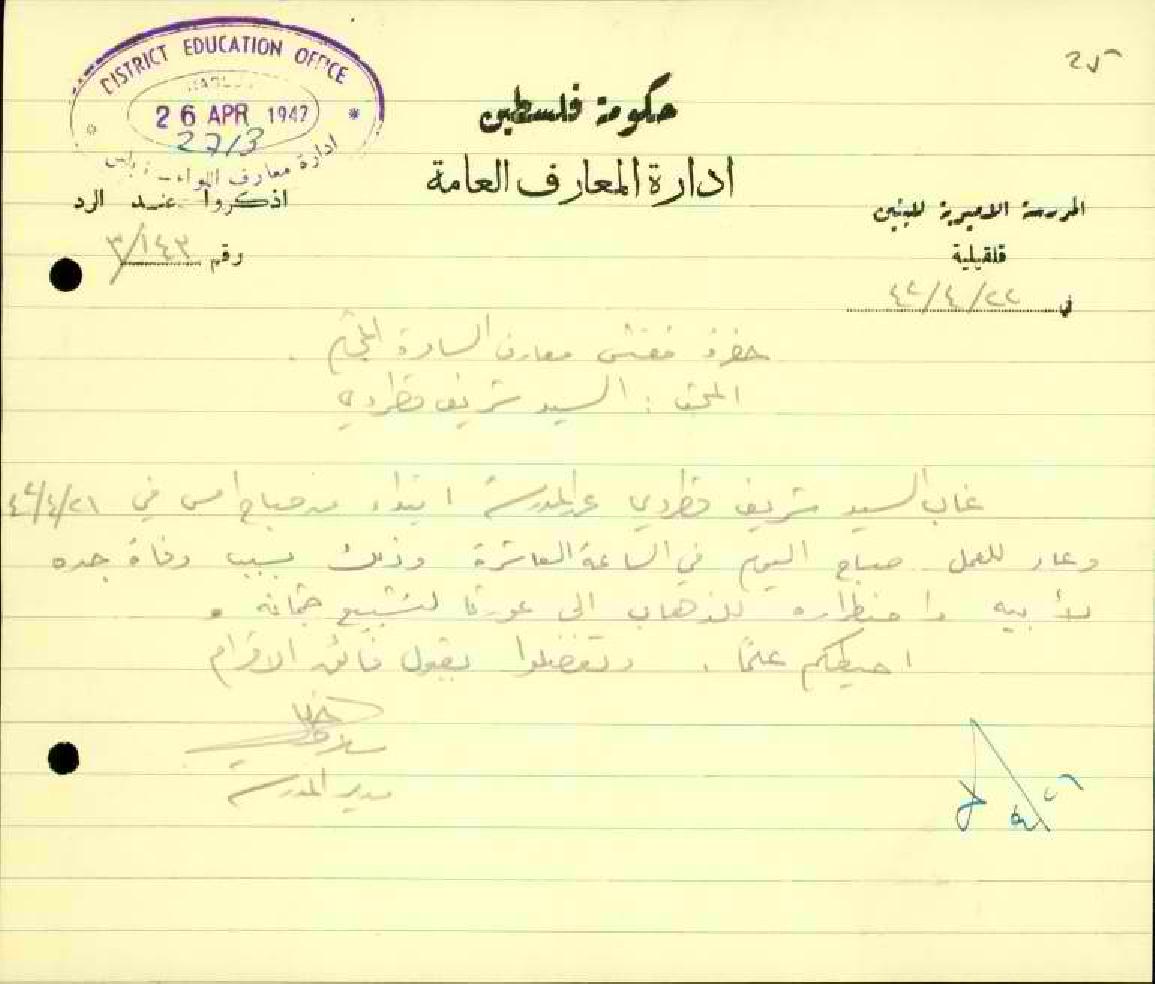 ٢٥
DISTRICT EDUCATION OFFICE
NABLUS
26 APR 1942
27/3
ادارة معارف اللواء - نابلس
حكومة فلسطين
ادارة المعارف العامة
اذكروا عند الرد
رقم ٣/١٤٣
المدرسة الاميرية للبنين
قلقيلية
في ٢٢/٤/٤٢
حضرة مفتش معارف السامرة المحترم .
الملحق : السيد شريف
غاب السيد شريف عن المدرسة ابتداء من صباح امس في ٢١/٤/٤٢
وعاد للعمل صباح اليوم في الساعة العاشرة وذلك بسبب وفاة جده
لأبيه واضطراره للذهاب الى عورتا لتشييع جثمانه و
احيطكم علمًا . وتفضلوا بقبول فائق الاحترام
مدير المدرسة